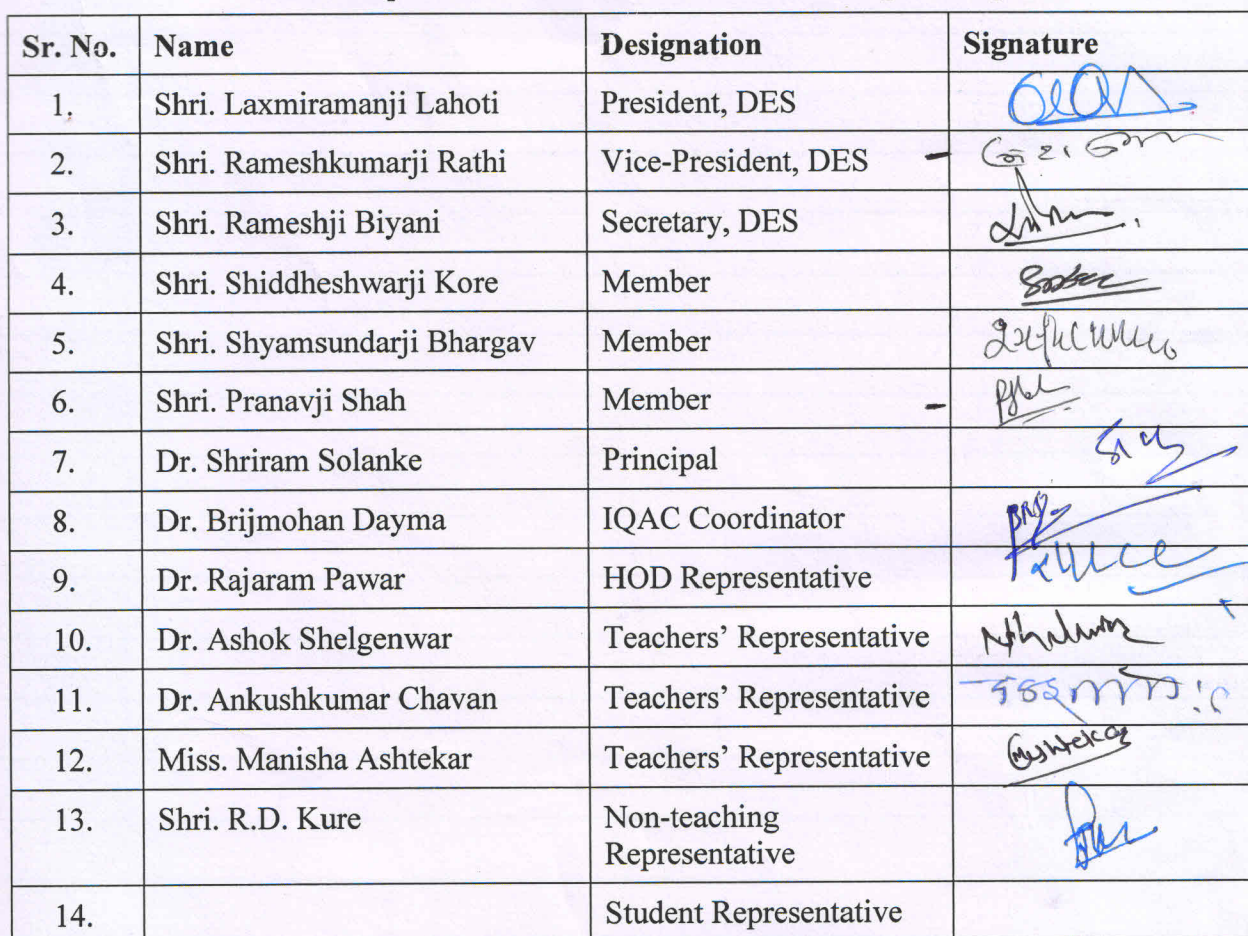 Sr. No. Name Designation Signature
1. Shri. Laxmiramanji Lahoti President, DES
2. Shri. Rameshkumarji Rathi Vice-President, DES
3. Shri. Rameshji Biyani Secretary, DES
4. Shri. Shiddheshwarji Kore Member
5. Shri. Shyamsundarji Bhargav Member
6. Shri. Pranavji Shah Member
7. Dr. Shriram Solanke Principal
8. Dr. Brijmohan Dayma IQAC Coordinator
9. Dr. Rajaram Pawar HOD Representative
10. Dr. Ashok Shelgenwar Teachers' Representative
11. Dr. Ankushkumar Chavan Teachers' Representative
12. Miss. Manisha Ashtekar Teachers' Representative
13. Shri. R.D. Kure Non-teaching
Representative
14. Student Representative